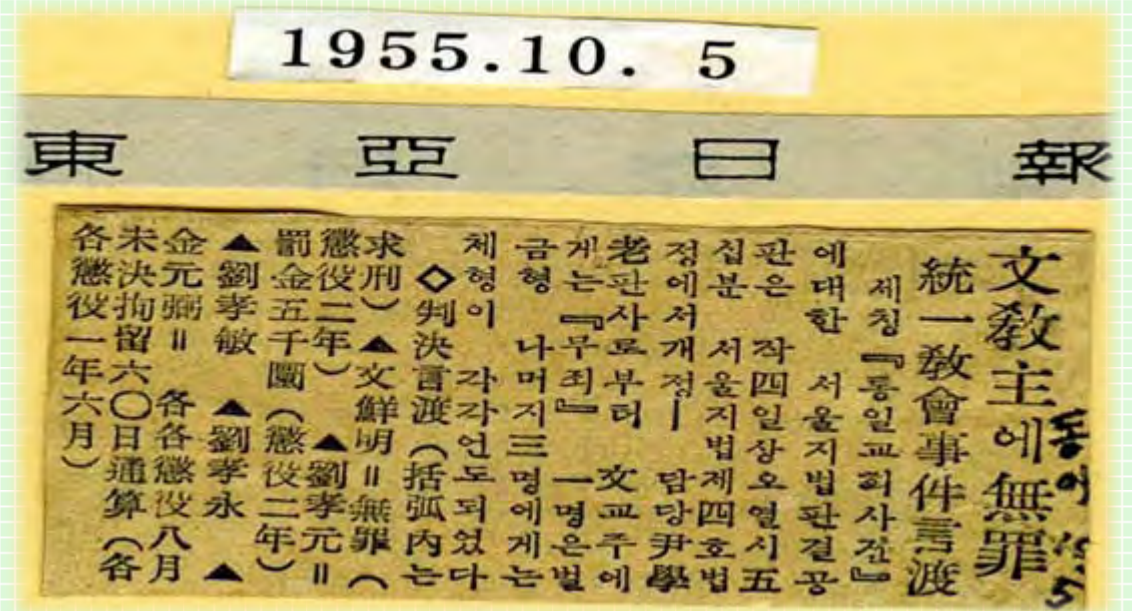 1955.10. 5
東亞日報
文敎主에 無罪
統一敎會事件言渡
제칭『통일교회사건』
에대한 서울지법판결공
판은 작四일상오열시五
십분 서울지법제四호법
정에서 개정— 담당尹學
老판사로부터 文교주에
게는『무죄』 一명은벌
금형 나머지三명에게는
체형이 각각언도되었다
◇判決言渡(括弧內는
求刑)▲文鮮明=無罪(
懲役二年)▲劉孝元=
罰金五千圜(懲役二年)
▲劉孝敏 ▲劉孝永 ▲
金元弼= 各各懲役八月
未決拘留六〇日通算(各
各懲役一年六月)
동아